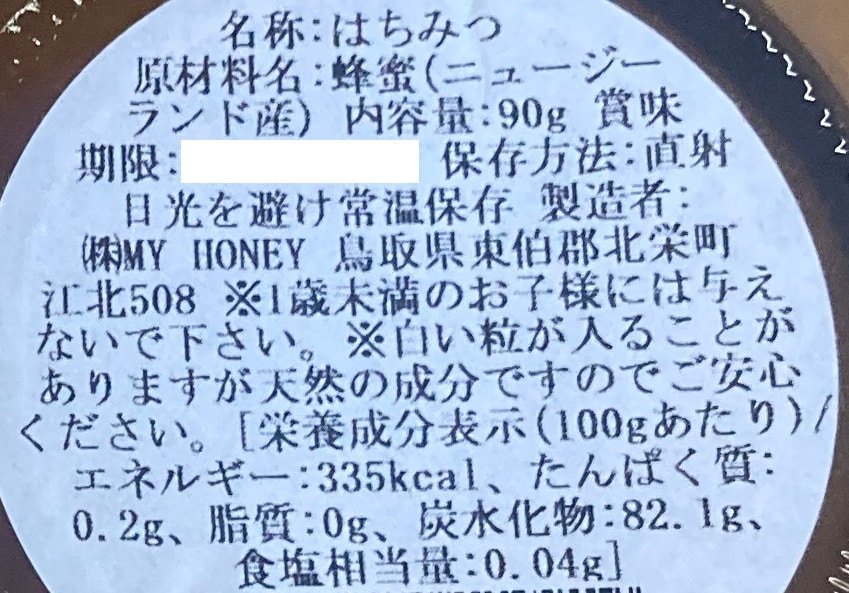 名称:はちみつ
原材料名:蜂蜜(ニュージー
ランド産) 内容量:90g 賞味
期限: 保存方法:直射
日光を避け常温保存 製造者:
㈱MY HONEY 鳥取県東伯郡北栄町
江北508 ※1歳未満のお子様には与え
ないで下さい。※白い粒が入ることが
ありますが天然の成分ですのでご安心
ください。[栄養成分表示(100gあたり)/
エネルギー:335kcal、たんぱく質:
0.2g、脂質:0g、炭水化物:82.1g、
食塩相当量:0.04g]